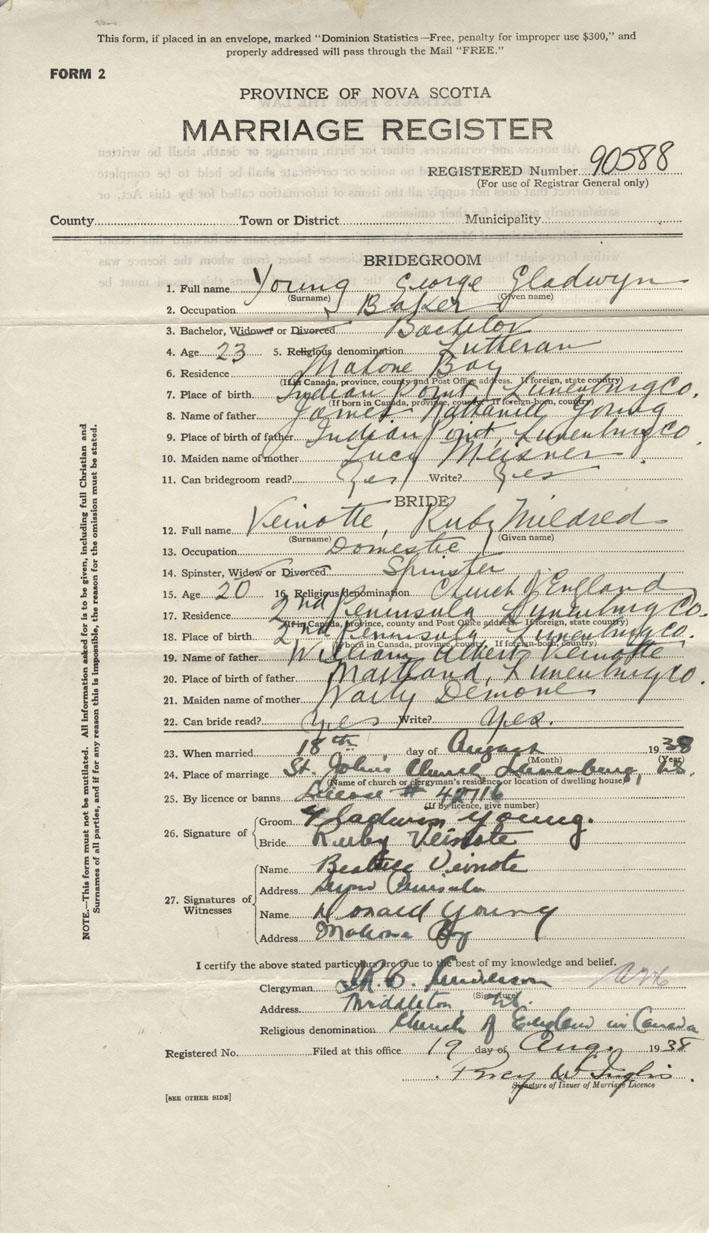 This form, if placed in an envelope, marked "Dominion Statistics—Free, penalty for improper use $300," and
properly addressed will pass through the Mail "FREE."
FORM 2
PROVINCE OF NOVA SCOTIA
MARRIAGE REGISTER
REGISTERED Number 90588
(For use of Registrar General only)
County Town or District Municipality
BRIDEGROOM
1. Full name Young George Gladwyn
(Surname) (Given name)
2. Occupation Baker
3. Bachelor, Widower or Divorced Bachelor
4. Age 23 5. Religious denomination Lutheran
6. Residence Mahone Bay
(If in Canada, province, county and Post Office address. If foreign, state country)
7. Place of birth Indian Point, Lunenburg Co.
(If born in Canada, province, county. If foreign-born, country)
8. Name of father James Nathaniel Young
9. Place of birth of father Indian Point, Lunenburg Co.
10. Maiden name of mother Lucy Meisner
11. Can bridegroom read? Yes Write? Yes
BRIDE
12. Full name Veinotte, Ruby Mildred
(Surname) (Given name)
13. Occupation Domestic
14. Spinster, Widow or Divorced Spinster
15. Age 20 16. Religious denomination Church of England
17. Residence 2nd Peninsula Lunenburg Co.
(If in Canada, province, county and Post Office address. If foreign, state country)
18. Place of birth 2nd Peninsula, Lunenburg Co.
(If born in Canada, province, county. If foreign-born, country)
19. Name of father William Albert Veinotte
20. Place of birth of father Maitland, Lunenburg Co.
21. Maiden name of mother Demone
22. Can bride read? Yes Write? Yes.
23. When married 18th day of August 1938
(Month) (Year)
24. Place of marriage St. John's Church Lunenburg, N.S.
(Name of church or clergyman's residence or location of dwelling house)
25. By licence or banns License # 42716
(If By licence, give number)
26. Signature of Groom Gladwin Young.
Bride Ruby Veinote
27. Signatures of Witnesses
Name Veinote
Address
Name Donald Young
Address Mahone Bay
I certify the above stated particulars are true to the best of my knowledge and belief.
Clergyman
(Signature)
Address Middleton N.S.
Religious denomination Church of England in Canada
Registered No. Filed at this office 19 day of Aug. 1938
Percy W
Signature of Issuer of Marriage Licence
[SEE OTHER SIDE]
NOTE.—This form must not be mutilated. All Information asked for is to be given, including full Christian and
Surnames of all parties, and if for any reason this is impossible, the reason for the omission must be stated.